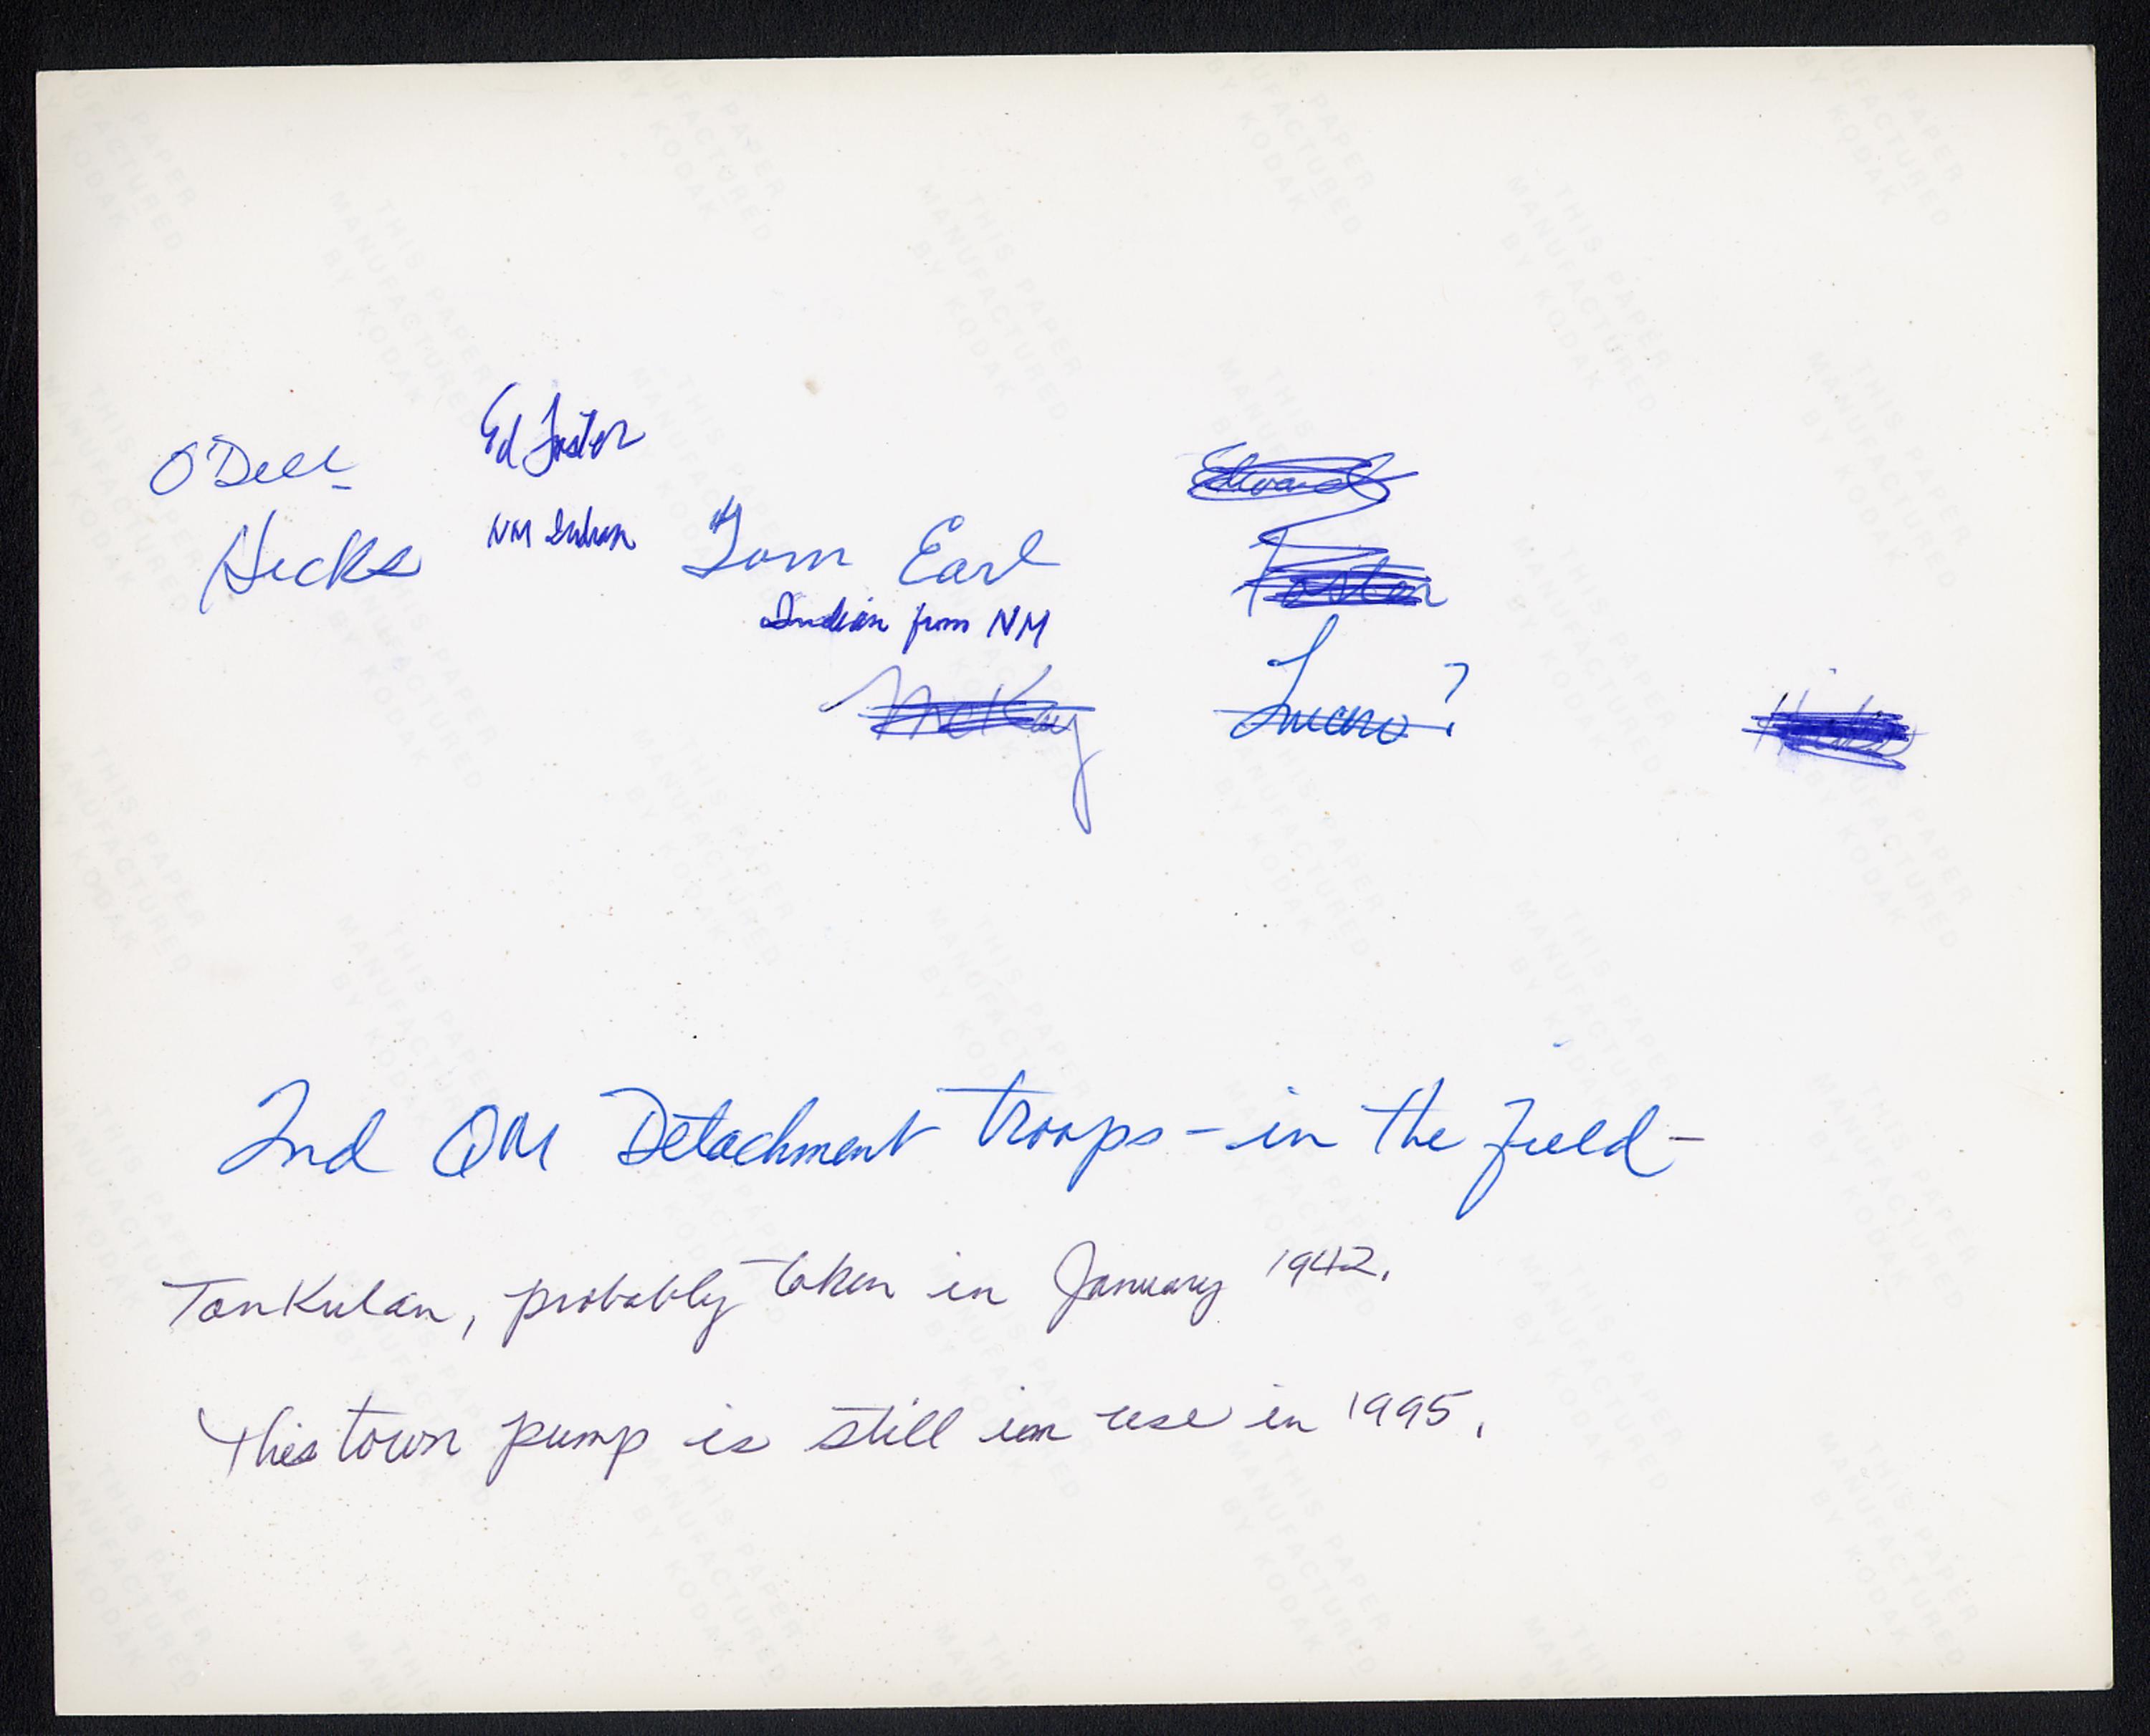 O'Dell
Hicks
Ed Foster
NM Indian
Tom Earl
Indian from NM
McKay
Edward
Foster
Lucero?
2nd QM Detachment troops - in the field -
TanKulan, probably taken in January 1942.
This town pump is still in use in 1995.
THIS PAPER
MANUFACTURED
BY KODAK